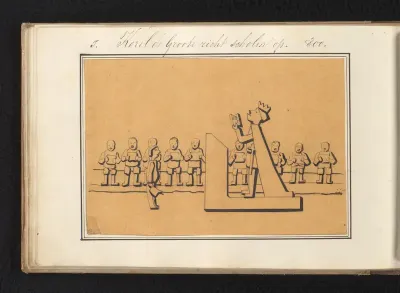 5. Karel de Groote richt scholen op. 800.